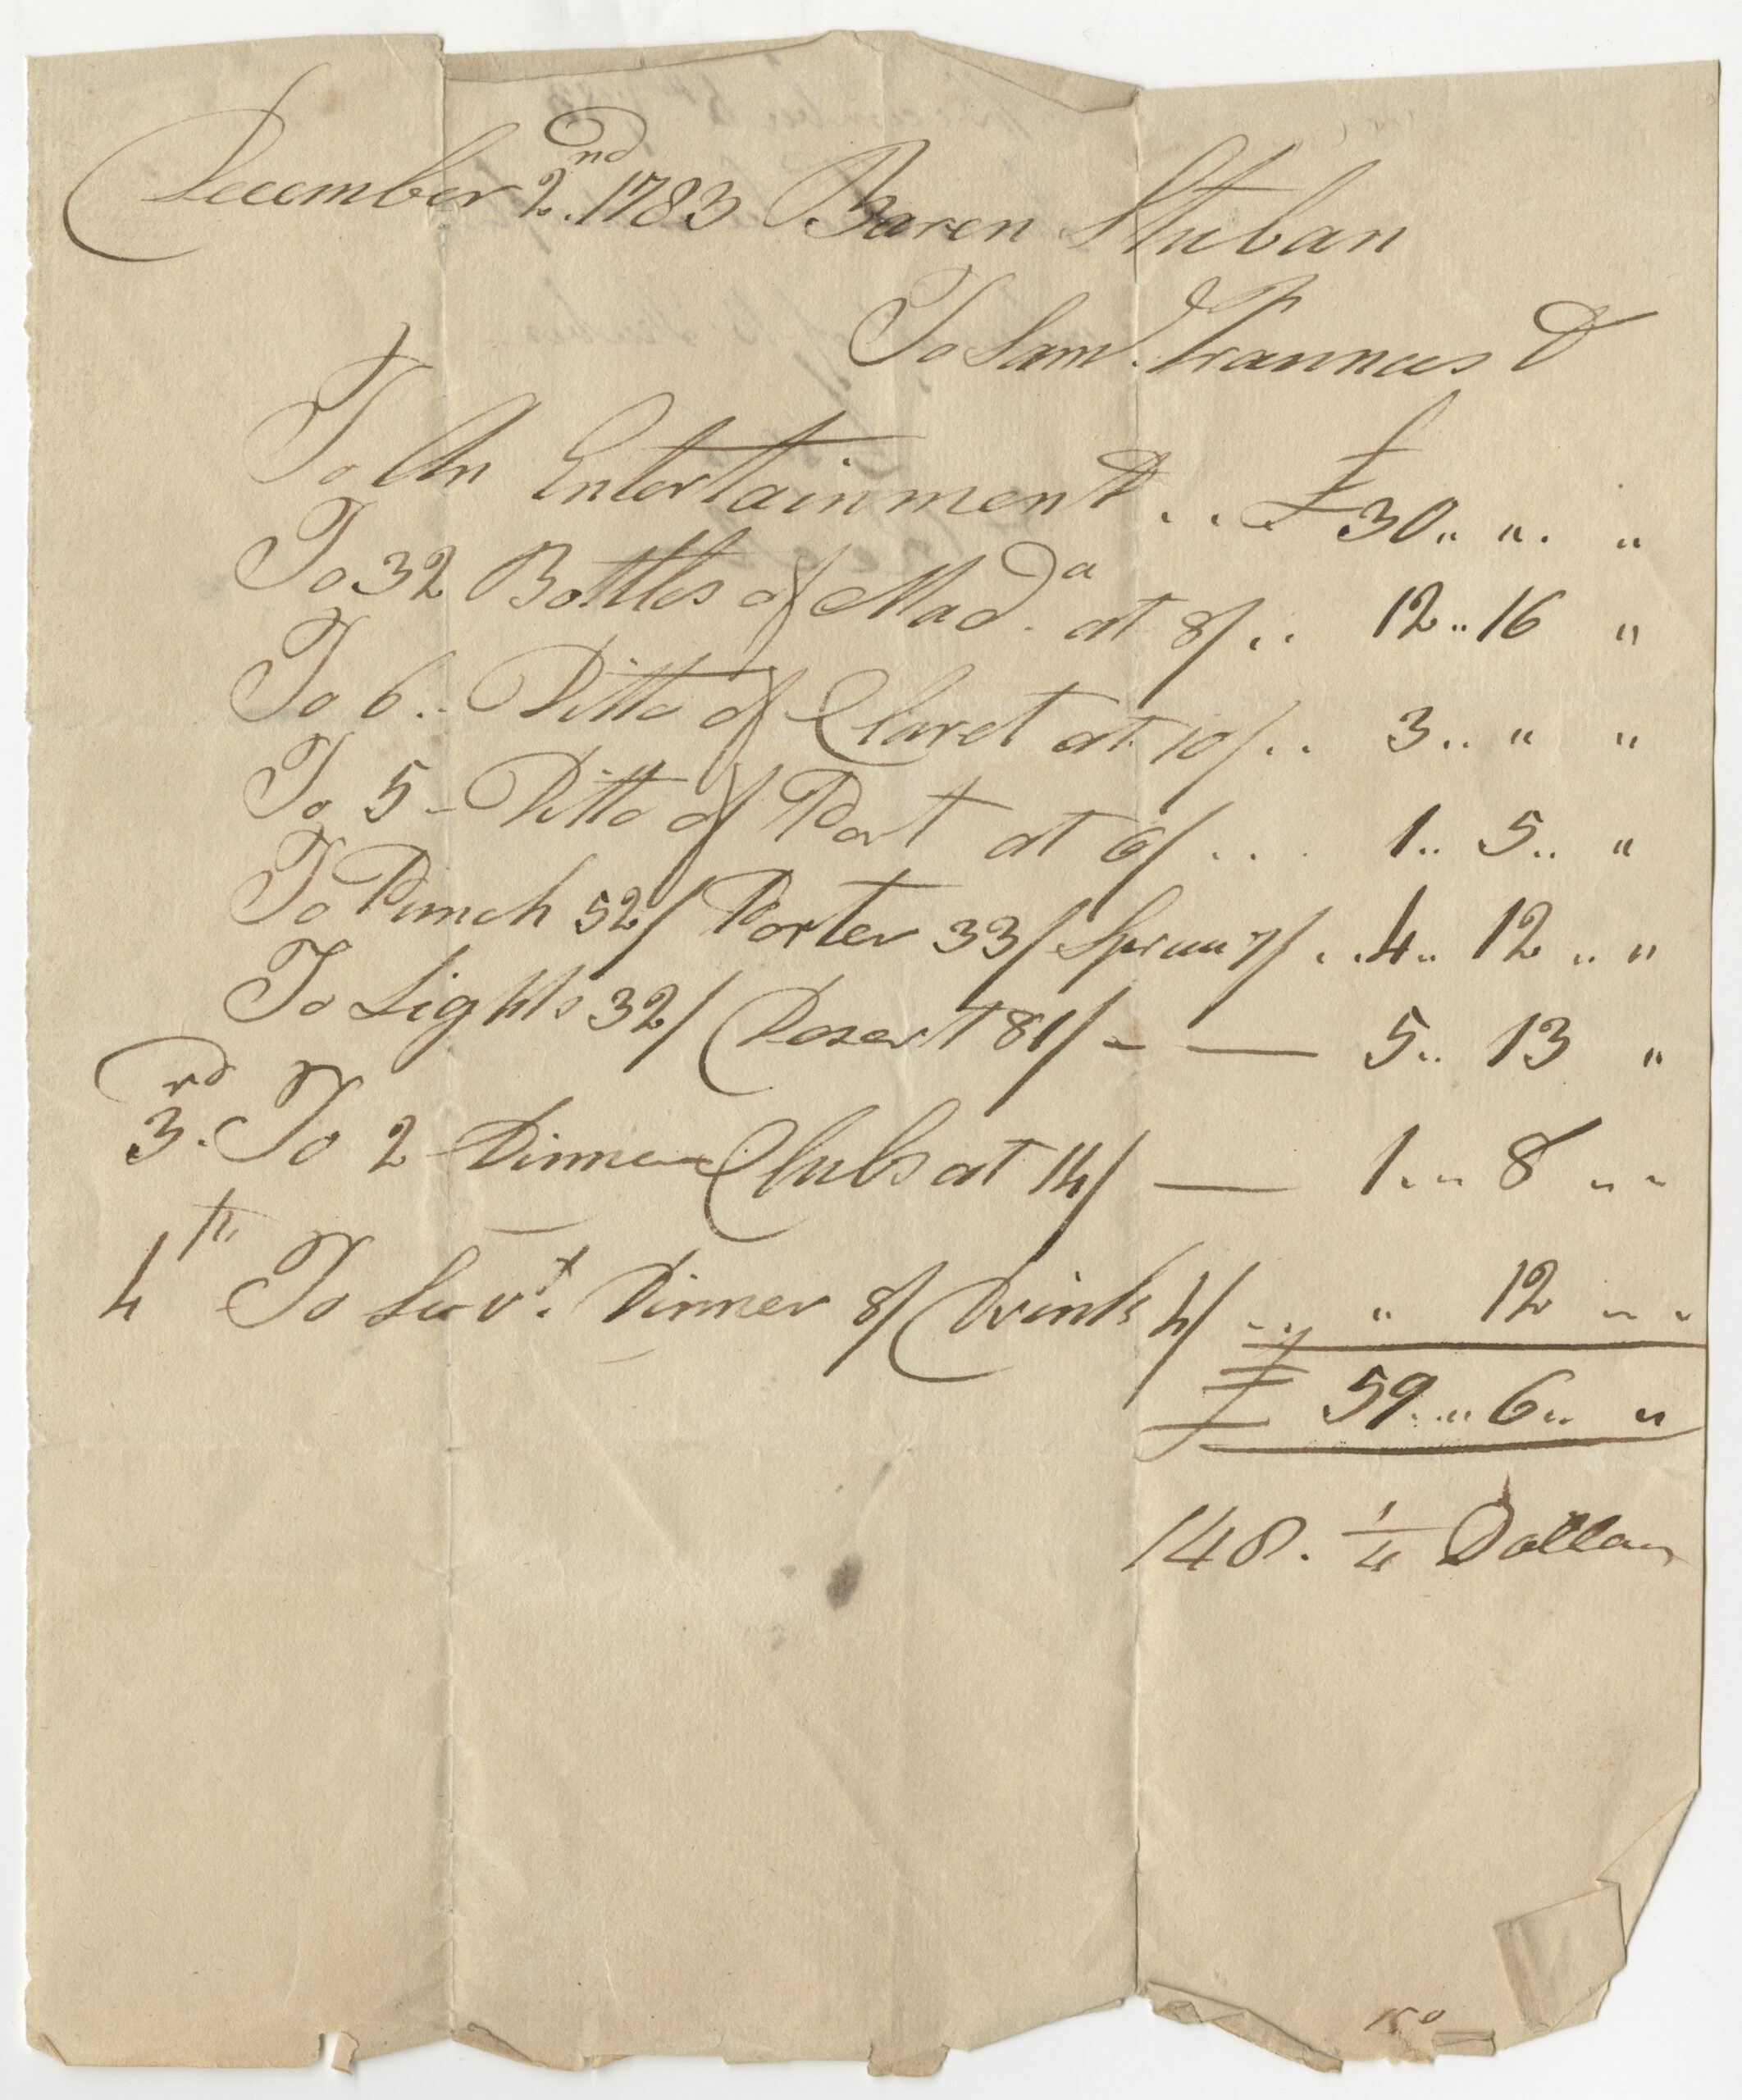 December 2nd. 1783 Baron Stuban
To Saml. Frannces Dr
To An Entertainment .. £30 .. " . "
To 32 Bottles of Mada. at 8/ .. 12 .. 16 "
To 6 .. Ditto of Claret at 10/ .. 3 .. " "
To 5 - Ditto of Port at 6/ ... 1 .. 5 .. "
To Punch 52/ Porter 33/ Spruce 7/ .. 4 .. 12 .. "
To Lights 32/ Desert 81/ - — 5 .. 13 "
3rd. To 2 Dinner Clubs at 14/ — 1 .. 8 ..
4th To Servt. Dinner 8/ Drink 4/ .. " 12 ..
£ 59 .. 6 .. "
148. 1/4 Dollars
150